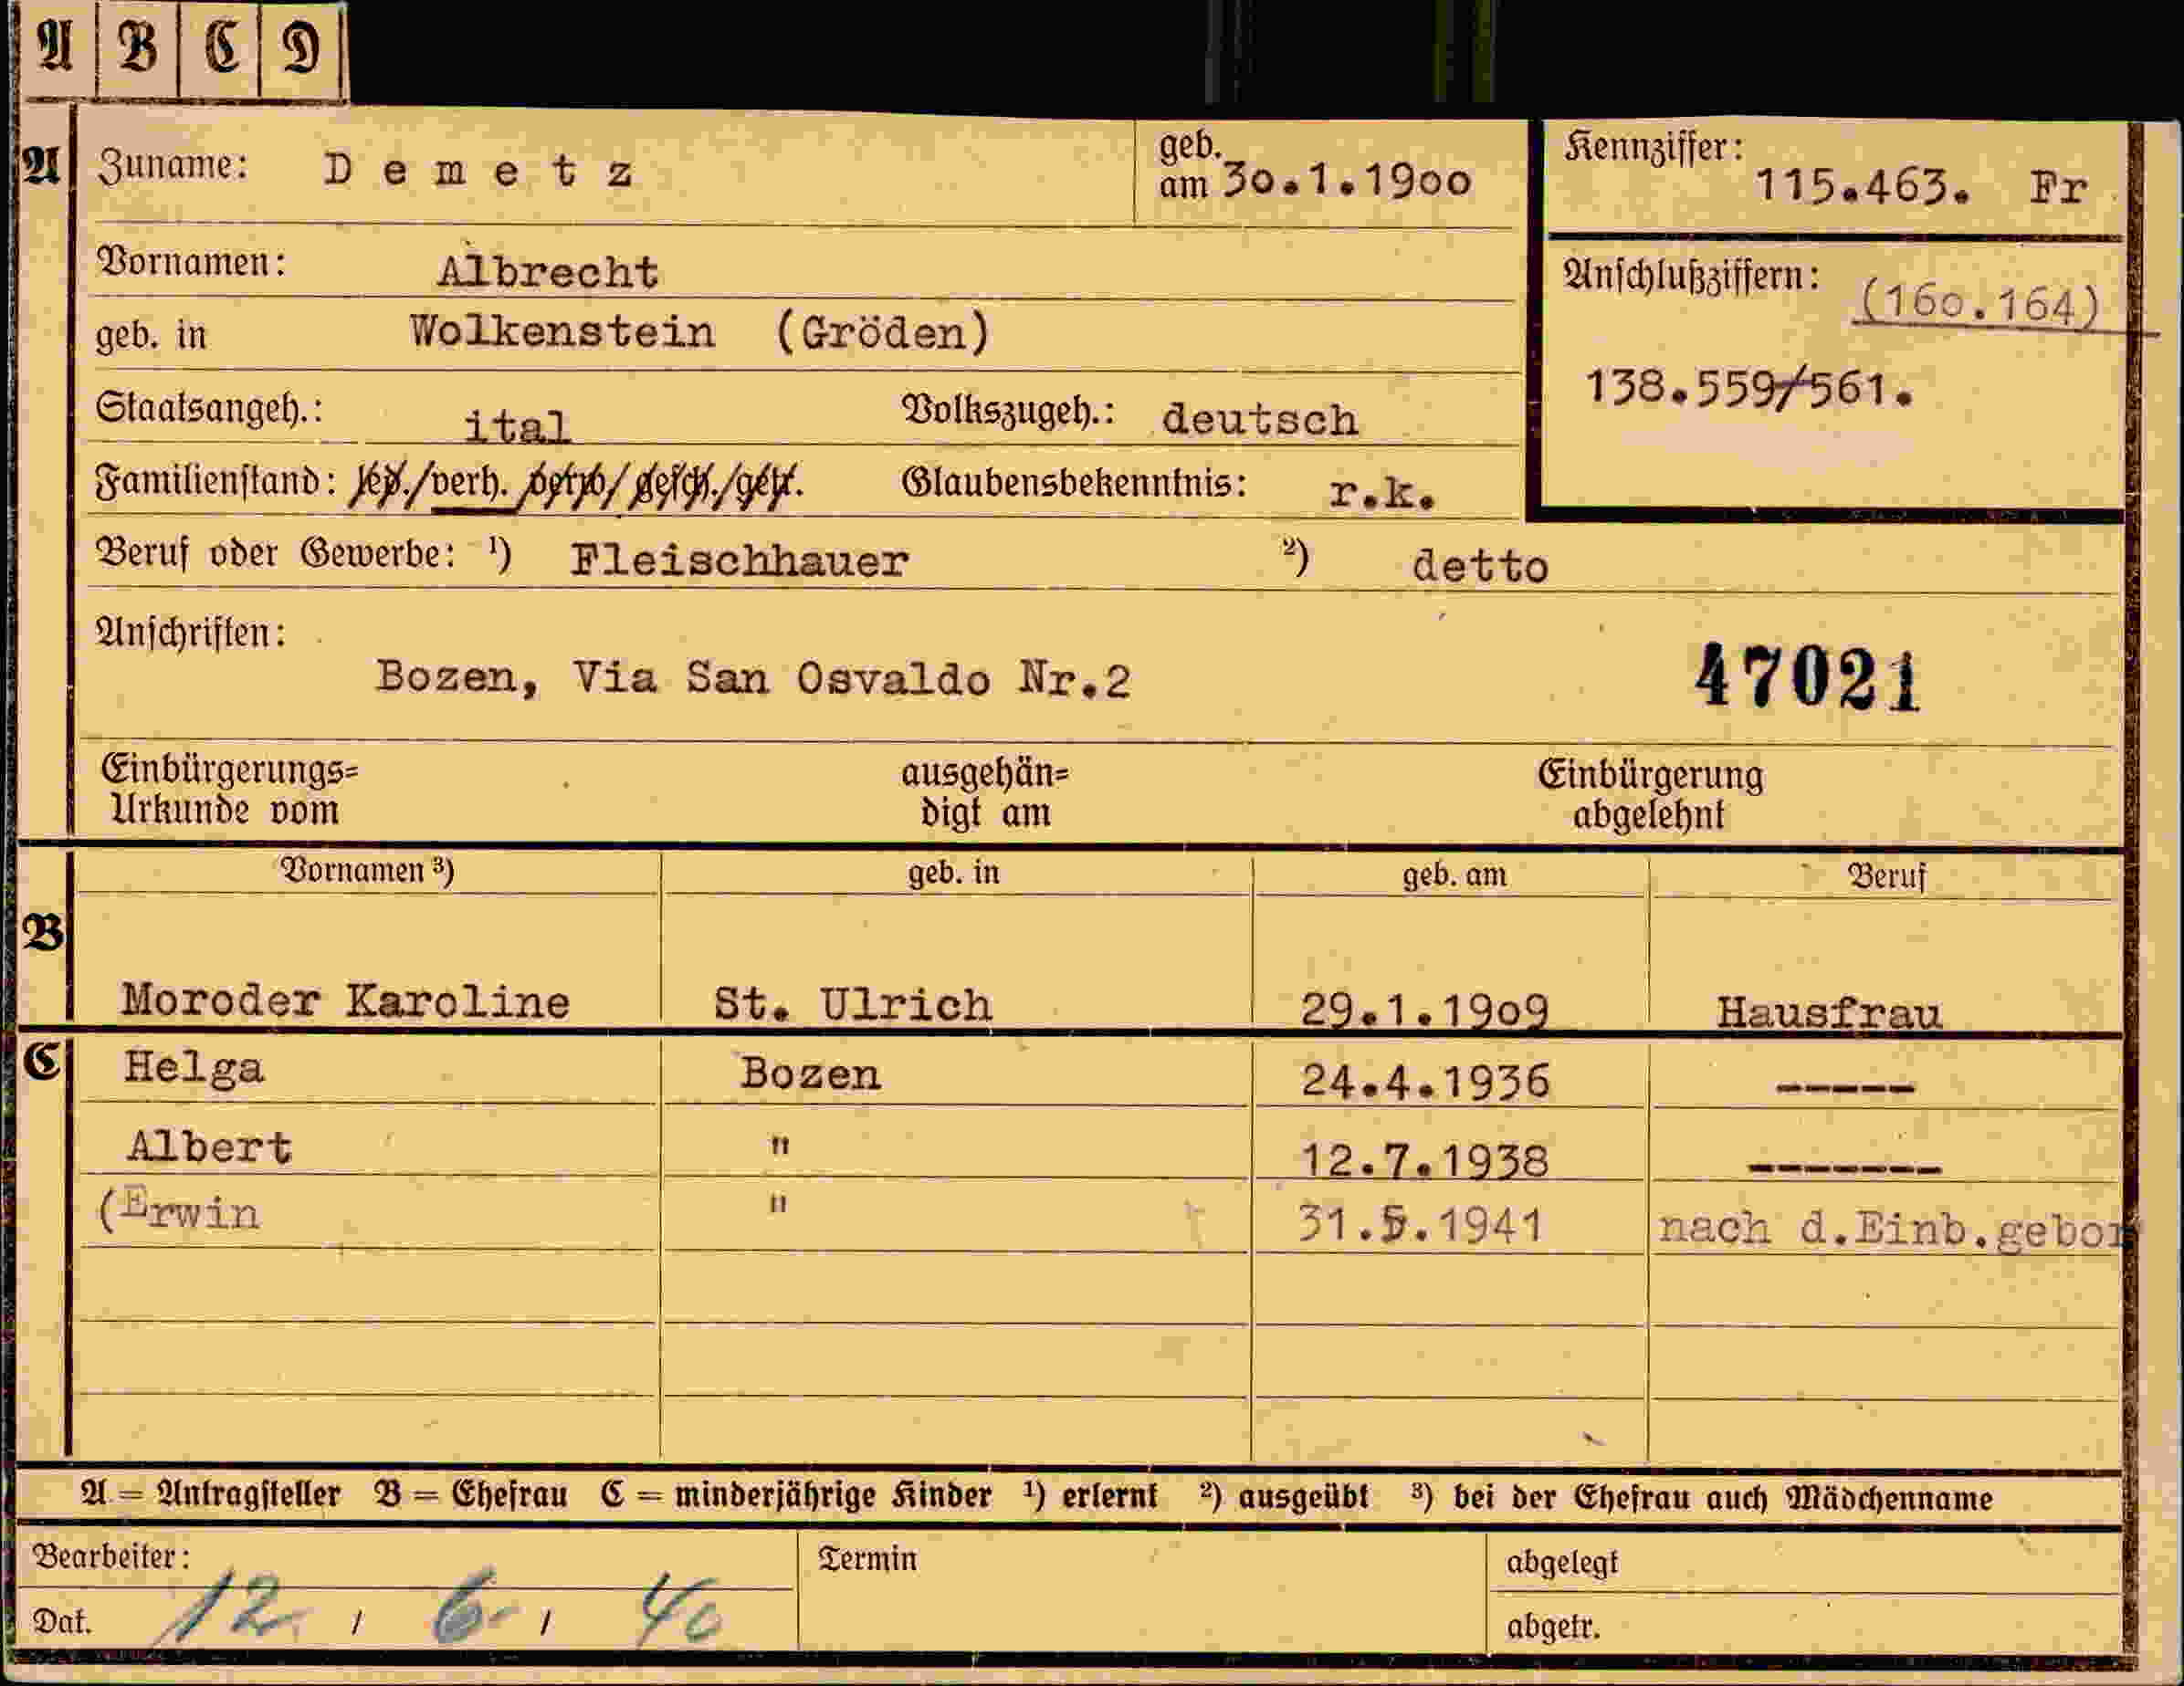 A B C D
A Zuname: Demetz geb. am 30.1.1900 Kennziffer: 115.463. Fr
Vornamen: Albrecht Anschlußziffern: (160.164)
geb. in Wolkenstein (Gröden)
138.559/561.
Staatsangeh.: ital Volkszugeh.: deutsch
Familienstand: led./verh./verw./gesch./getr. Glaubensbekenntnis: r.k.
Beruf oder Gewerbe: ¹) Fleischhauer ²) detto
Anschriften:
Bozen, Via San Osvaldo Nr.2 47021
Einbürgerungs= ausgehän= Einbürgerung
Urkunde vom digt am abgelehnt
Vornamen ³) geb. in geb. am Beruf
B
Moroder Karoline St. Ulrich 29.1.1909 Hausfrau
C Helga Bozen 24.4.1936 -----
Albert " 12.7.1938 -------
(Erwin " 31.5.1941 nach d.Einb.gebor
A = Antragsteller B = Ehefrau C = minderjährige Kinder ¹) erlernt ²) ausgeübt ³) bei der Ehefrau auch Mädchenname
Bearbeiter: Termin abgelegt
Dat. 12. / 6. / 40 abgetr.